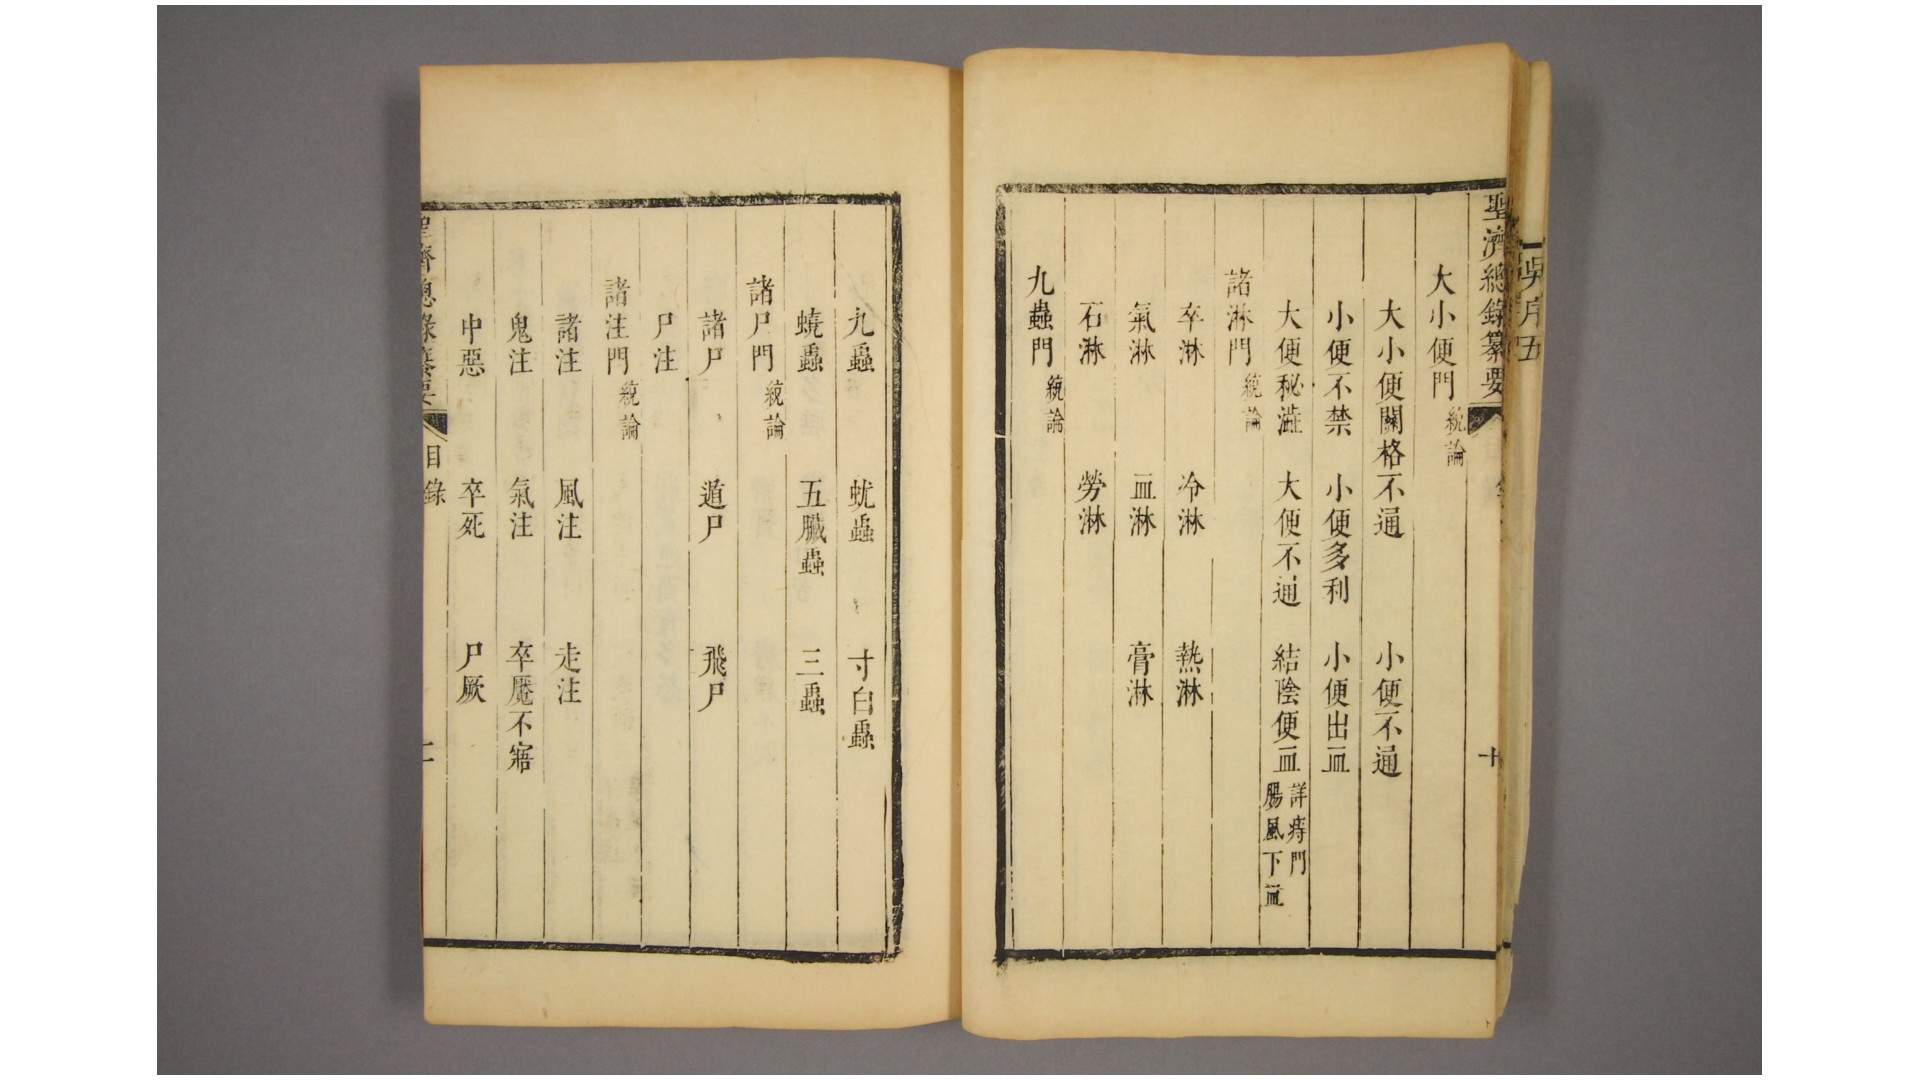 吳序五
聖濟總錄纂要
十
大小便門 統論
大小便關格不通 小便不通
小便不禁 小便多利 小便出血
大便秘澁 大便不通 結陰便血 詳痔門腸風下血
諸淋門 統論
卒淋 冷淋 熱淋
氣淋 血淋 膏淋
石淋 勞淋
九蟲門 統論
九蟲 蚘蟲 寸白蟲
蟯蟲 五臟蟲 三蟲
諸尸門 統論
諸尸 遁尸 飛尸
尸注
諸注門 統論
諸注 風注 走注
鬼注 氣注 卒魘不寤
中惡 卒死 尸厥
聖濟總錄纂要 目錄